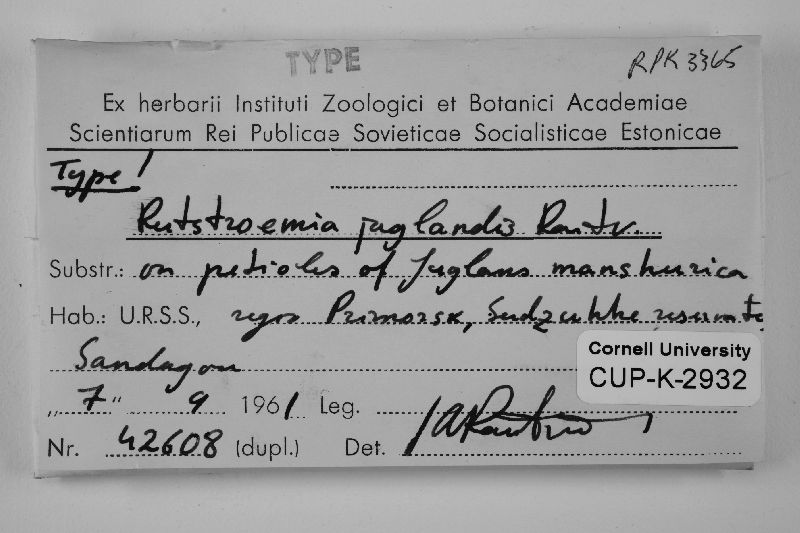 TYPE
RPK 3365
Ex herbarii Instituti Zoologici et Botanici Academiae
Scientiarum Rei Publicae Sovieticae Socialisticae Estonicae
Type!
Rutstroemia juglandis Raitv.
Substr.: on petioles of Juglans manshurica
Hab.: U.R.S.S., regio Primorsk, Sudzukhe
Sandagou
Cornell University
CUP-K-2932
„ 7 " 9 1961 Leg.
Nr. 42608 (dupl.) Det.